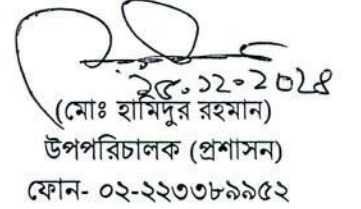 ২৫.১২.২০২৪
(মোঃ হামিদুর রহমান)
উপপরিচালক (প্রশাসন)
ফোন- ০২-২২৩৩৮৯৯৫২